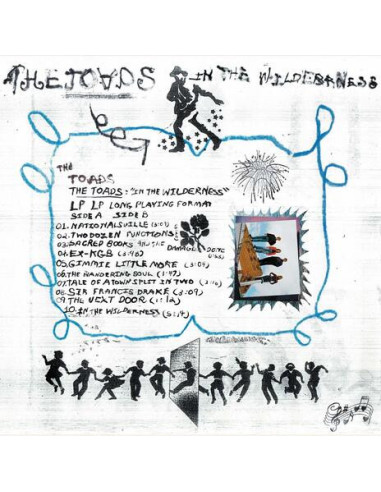 THE TOADS IN THE WILDERNESS
THE
TOADS
THE TOADS: "IN THE WILDERNESS"
LP LP LONG PLAYING FORMAT
SIDE A SIDE B
01. NATIONALSVILLE
02. TWO DOZEN FUNCTIONS
03. SACRED BOOKS
04. EX-KGB (3:40)
05. GIMMIE LITTLE MORE (3:09)
06. THE WANDERING SOUL (1:47)
07. TALE OF A TOWN SPLIT IN TWO
08. SIR FRANCIS DRAKE (3:09)
09. THE NEXT DOOR
10. IN THE WILDERNESS (5:14)